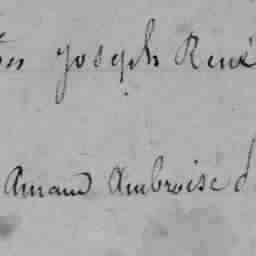 Joseph René
Amand Ambroise d